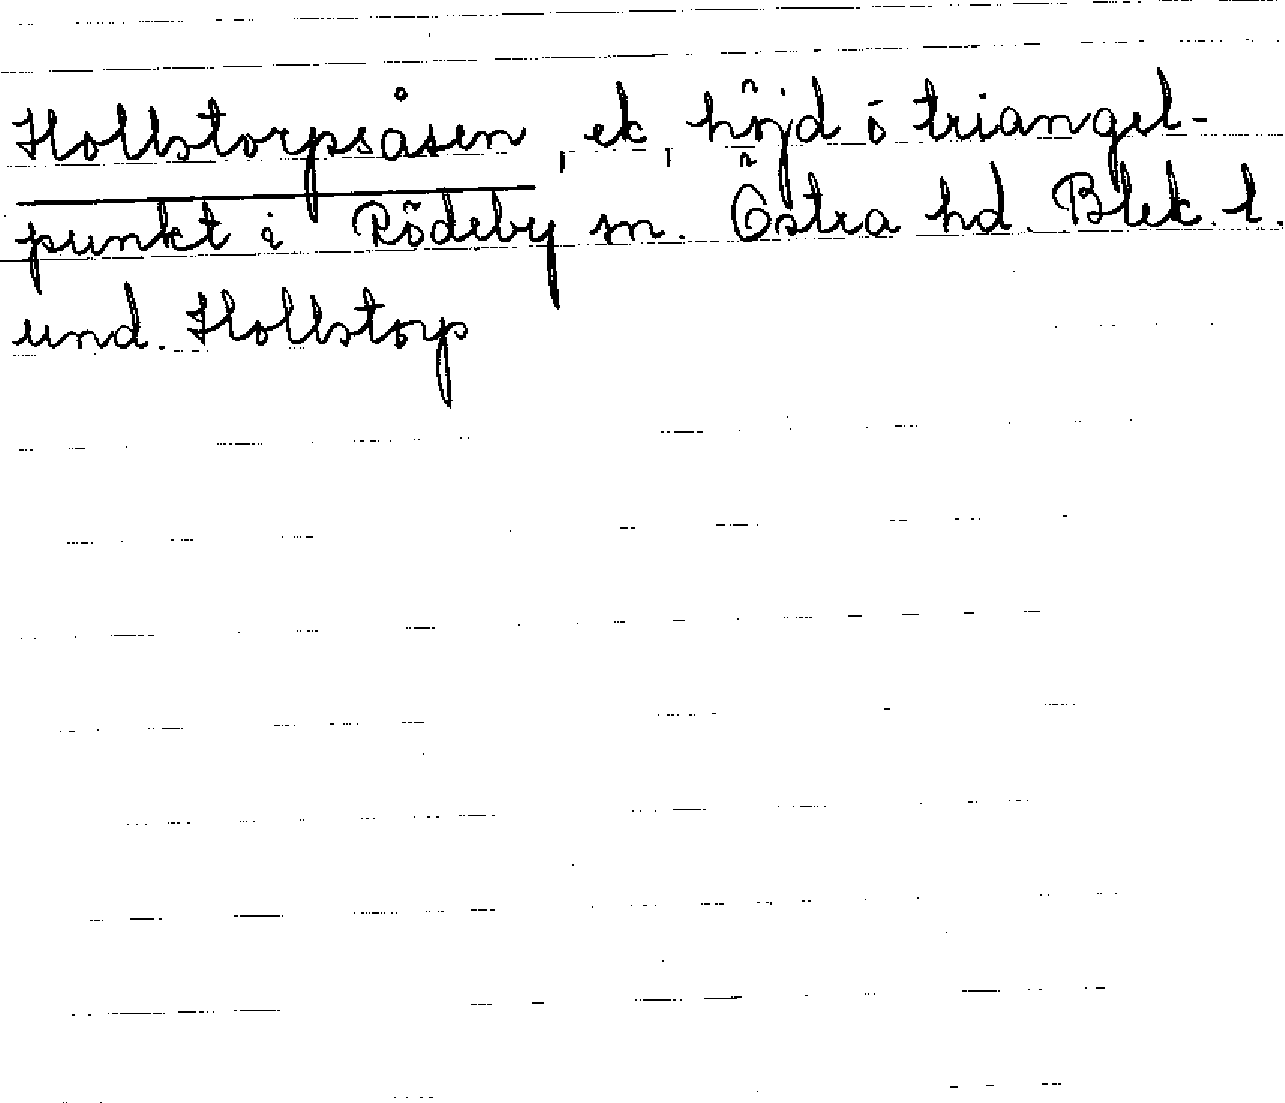 Hollstorpsåsen, ek, höjd o triangel-
punkt i Rödeby sn. Östra hd. Blek. l.
und. Hollstorp